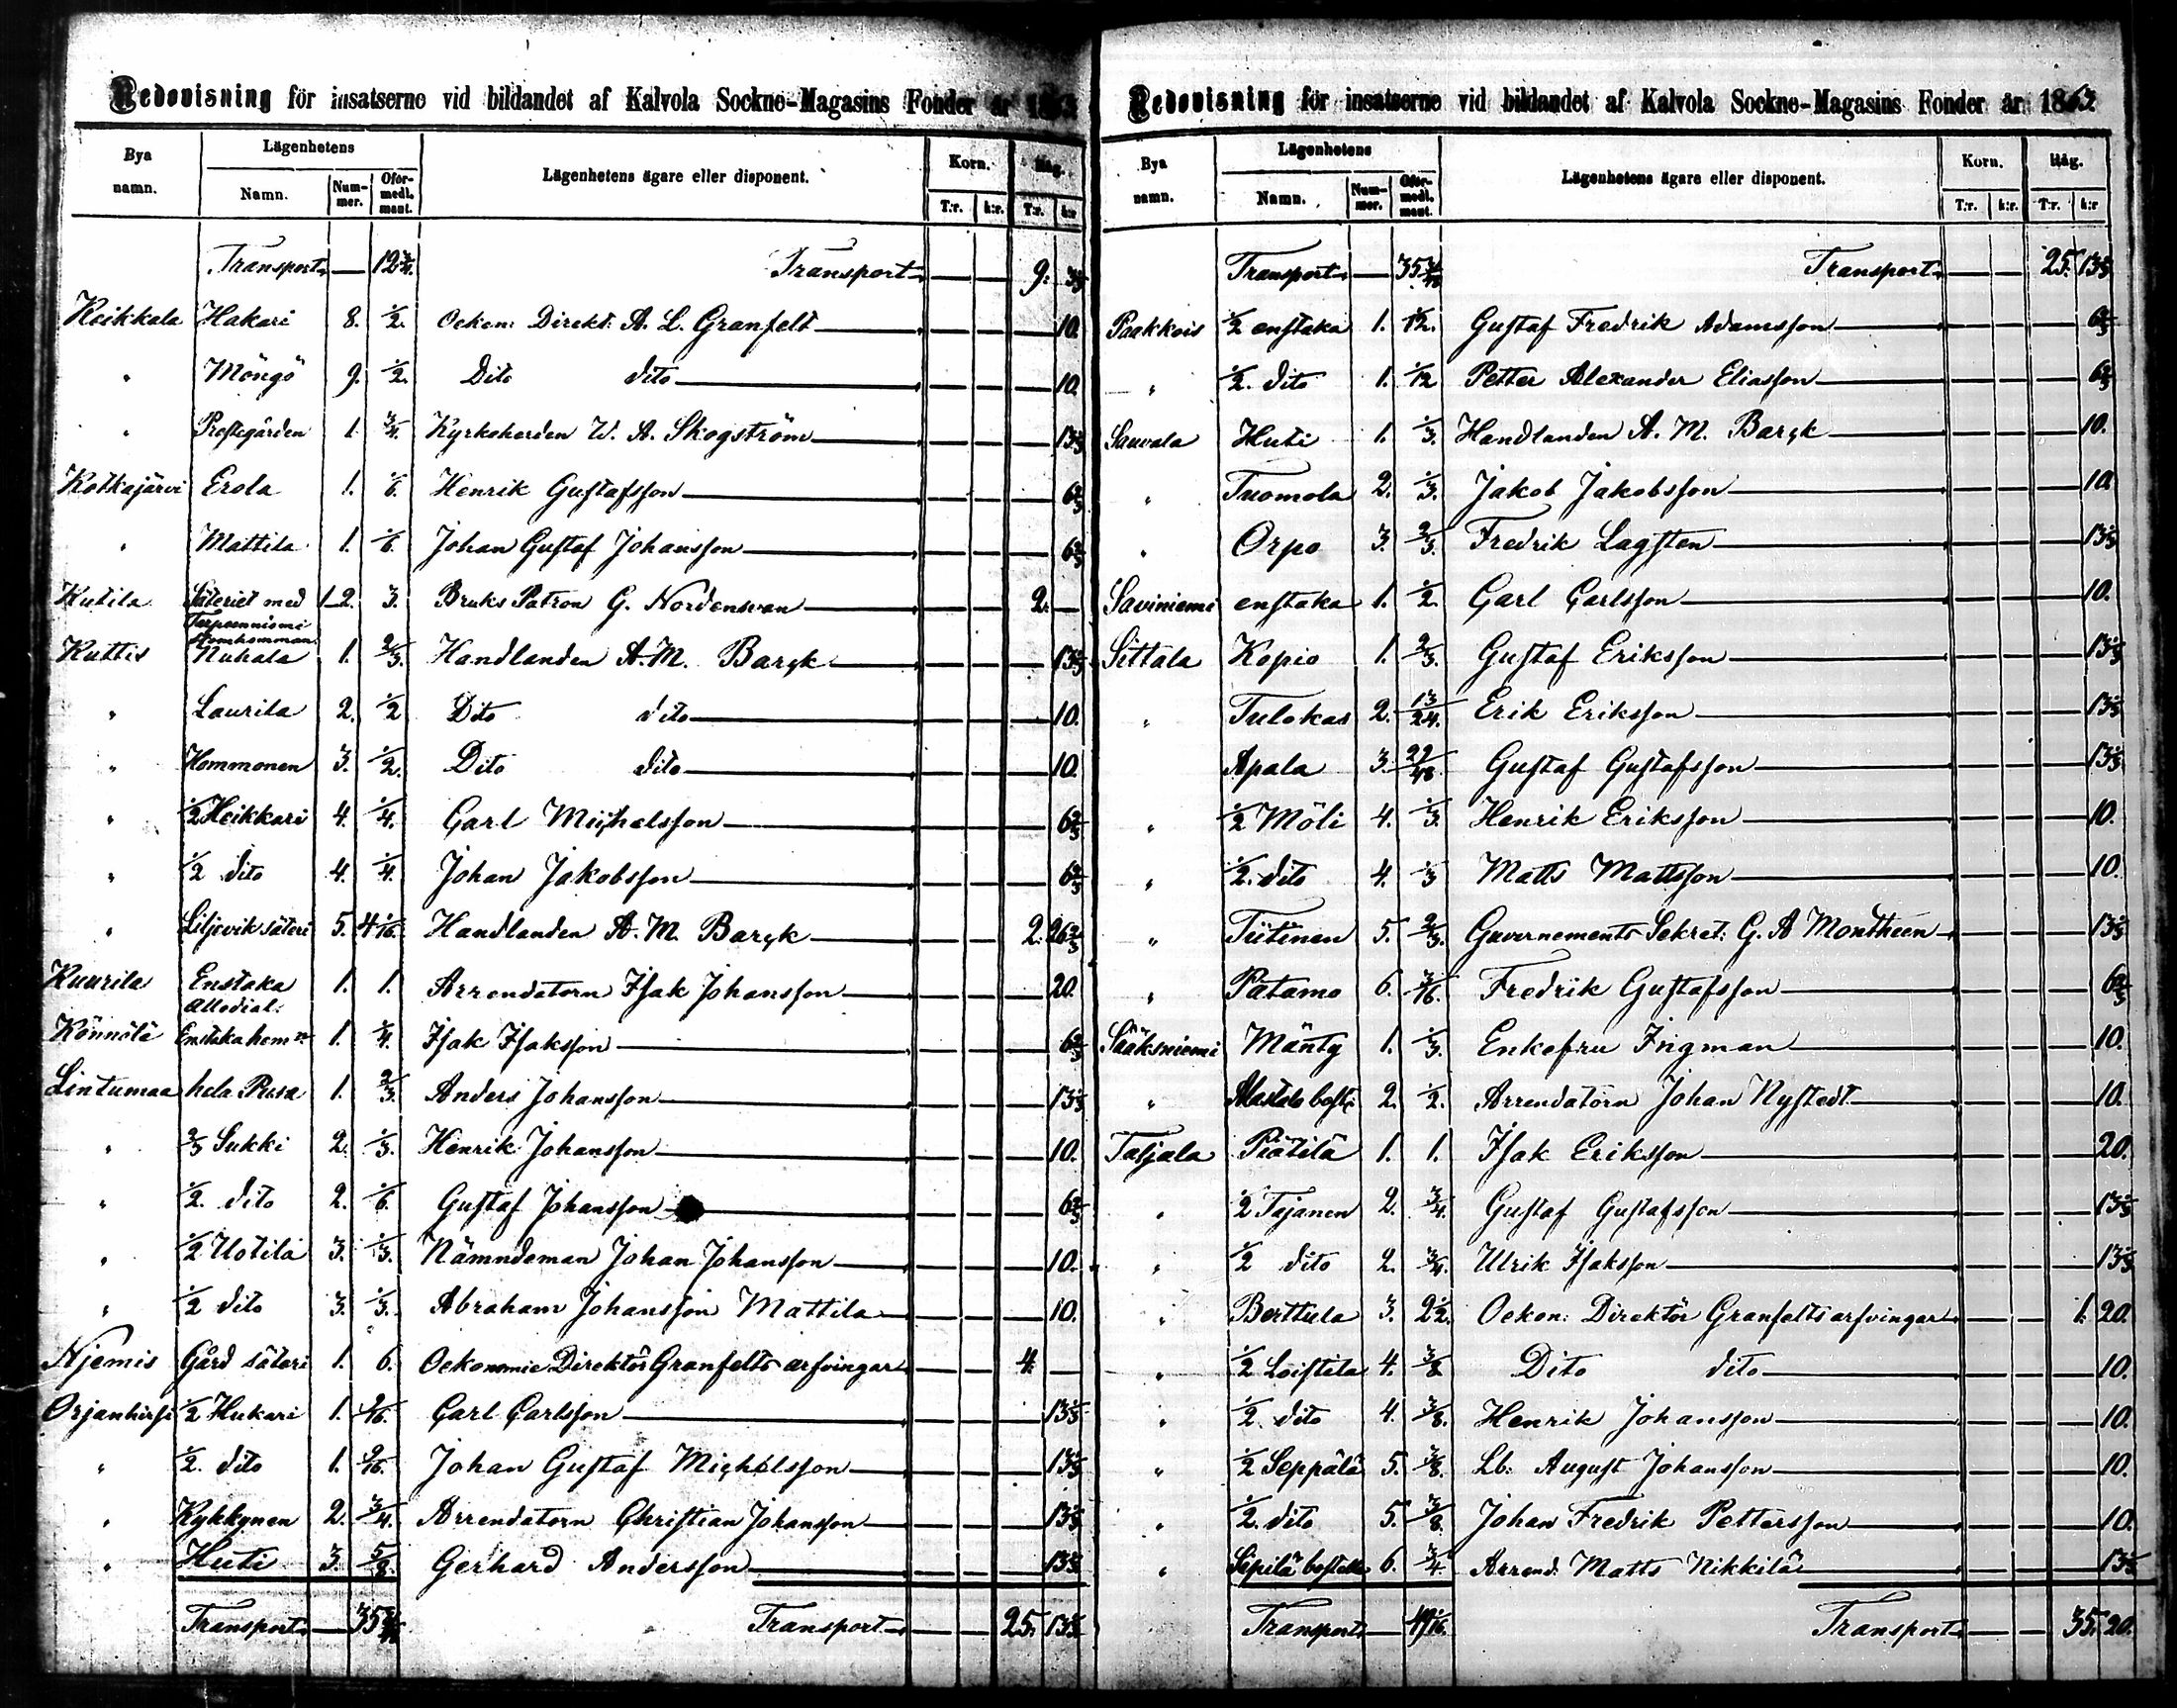 Redovisning för insatserne vid bildandet af Kalvola Sockne-Magasins Fonder år 1863
Bya namn. Lägenhetens Namn. Num-mer. Oför-medl. mant. Lägenhetens ägare eller disponent. Korn. T:r. k:r. Råg. T:r. k:r
Transport — 12 3/4. Transport — — 9. 3 1/3
Keikkala Hakari 8. 1/2. Oekon: Direkt: A. L. Granfelt — — — 10.
" Möngö 9. 1/2. Dito dito — — — 10.
" Prestgården 1. 3/4. Kyrkoherden W. A. Skogström — — — 13 1/3
Kotkajärvi Erola 1. 1/6. Henrik Gustafsson — — — 6 2/3
" Mattila 1. 1/6. Johan Gustaf Johansson — — — 6 2/3
Kutila Säteriet med 1-2. 3. Bruks Patron G. Nordensvan — — 2. —
Kuttis Nuhala 1. 2/3. Handlanden A. M. Barck — — — 13 1/3
" Laurila 2. 1/2 Dito dito — — — 10.
" Hommonen 3. 1/2. Dito dito — — — 10.
" 1/2 Heikkari 4. 1/4. Carl Michelsson — — — 6 2/3
" 1/2 dito 4. 1/4. Johan Jakobsson — — — 6 2/3
" Liljevik säteri 5. 4 1/16. Handlanden A. M. Barck — — 2. 26 2/3
Kuurila Enstaka allodial. 1. 1. Arrendatorn Isak Johansson — — — 20.
Könnölä Enstaka hemn 1. 1/4. Isak Isaksson — — — 6 2/3
Lintumaa hela Pusa 1. 2/3. Anders Johansson — — — 13 1/3
" 2/3 Sukki 2. 1/3. Henrik Johansson — — — 10.
" 1/2. dito 2. 1/6. Gustaf Johansson — — — 6 2/3
" 1/2 Uotila 3. 1/3. Nämndeman Johan Johansson — — — 10.
" 1/2 dito 3. 1/3. Abraham Johansson Mattila — — — 10.
Niemis Gård säteri 1. 6. Oekonomie Direktör Granfelts arfvingar — — 4. —
Orjanhirsi 1/2 Hukari 1. 9/16. Carl Carlsson — — — 13 1/3
" 1/2. dito 1. 9/16. Johan Gustaf Michelsson — — — 13 1/3
" Kykkynen 2. 3/4. Arrendatorn Christian Johansson — — — 13 1/3
" Huti 3. 5/8. Gerhard Andersson — — — 13 1/3
Transport — 35 Transport — — 25. 13 1/3
Redovisning för insatserne vid bildandet af Kalvola Sockne-Magasins Fonder år 1863
Bya namn. Lägenhetens Namn. Num-mer. Oför-medl. mant. Lägenhetens ägare eller disponent. Korn. T:r. k:r. Råg. T:r. k:r
Transport — 35 Transport — — 25. 13 1/3
Paakkois 1/2 enstaka 1. 1/12. Gustaf Fredrik Adamsson — — — 6 2/3
" 1/2. dito 1. 1/12 Petter Alexander Eliasson — — — 6 2/3
Sauvala Huti 1. 1/3. Handlanden A. M. Barck — — — 10.
" Tuomola 2. 1/3. Jakob Jakobsson — — — 10.
" Orpo 3. 2/3. Fredrik Lagsten — — — 13 1/3
Saviniemi enstaka 1. 1/2. Carl Carlsson — — — 10.
Sittala Kopio 1. 2/3. Gustaf Eriksson — — — 13 1/3
" Tulokas 2. 13/24. Erik Eriksson — — — 13 1/3
Apala 3. 29/48. Gustaf Gustafsson — — — 13 1/3
" 1/2 Möli 4. 1/3. Henrik Eriksson — — — 10.
" 1/2. dito 4. 1/3 Matts Mattsson — — — 10.
" Tiitinen 5. 2/3. Guvernements Sekret: G. A Montheen — — — 13 1/3
" Patamo 6. 3/16. Fredrik Gustafsson — — — 6 2/3
Sääksniemi Mänty 1. 1/3. Enkefru Ingman — — — 10.
" Alastalo bost: 2. 1/2. Arrendatorn Johan Nystedt — — — 10.
Taljala Piätilä 1. 1. Isak Eriksson — — — 20.
" 1/2 Tajanen 2. 3/4. Gustaf Gustafsson — — — 13 1/3
" 1/2 dito 2. 3/4. Ulrik Isaksson — — — 13 1/3
" Berttula 3. 2 1/2. Oekon: Direktör Granfelts arfvingar — — 1. 20.
" 1/2 Loistila 4. 3/8 Dito dito — — — 10.
" 1/2. dito 4. 3/8. Henrik Johansson — — — 10.
" 1/2 Seppälä 5. 3/8. Lb: August Johansson — — — 10.
" 1/2. dito 5. 3/8. Johan Fredrik Pettersson — — — 10.
" Sipilä bostelle 6. 3/4. Arrend. Matts Nikkilä — — — 13 1/3
Transport — Transport — — 35. 20.